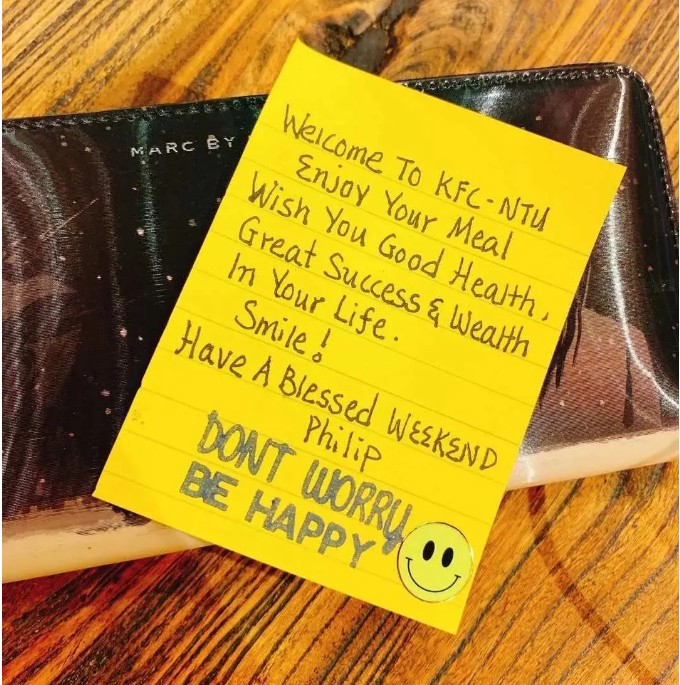 MARC BY
Welcome To KFC-NTU
Enjoy Your Meal
Wish You Good Health,
Great Success & Wealth
In Your Life.
Smile!
Have A Blessed WEEKEND
Philip
DONT WORRY
BE HAPPY